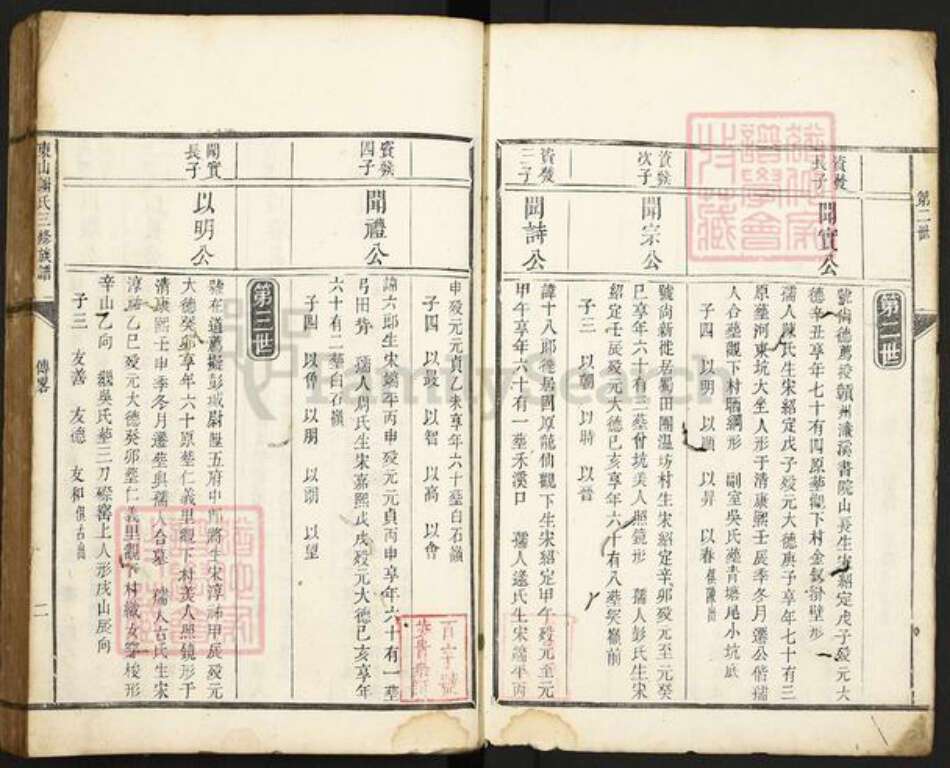 第二世
第二世
資發
長子
聞實公
號尚德薦授贛州濂溪書院山長生宋紹定戊子歿元大
德辛丑享年七十有四原葬觀下村金釵掛壁形
孺人陳氏生宋紹定戊子歿元大德庚子享年七十有三
原葬河東坑大坐人形于清康熙壬辰季冬月遷公偕孺
人合墓觀下村晒網形 副室吳氏葬青塘尾小坑底
子四 以明 以 以昇 以春俱陳出
資發
次子
聞宗公
號尚新徙居蜀田團溫坊村生宋紹定辛卯歿元至元癸
巳享年六十有三葬曾坑美人照鏡形 孺人彭氏生宋
紹定壬辰歿元大德己亥享年六十有八葬癸嶺前
子三 以朝 以時 以晉
資發
三子
聞詩公
諱十八郎徙居國厚龍仙觀下生宋紹定甲午歿元至元
甲午享年六十有一葬禾溪口 孺人遂氏生宋端平丙
申歿元元貞乙未享年六十葬白石嶺
子四 以最 以智 以高 以會
資發
四子
聞禮公
諱六郎生宋端平丙申歿元元貞丙申享年六十有一葬
弓田 孺人周氏生宋嘉熙戊戌歿元大德己亥享年
六十有二葬白石嶺
子四 以魯 以朋 以朗 以望
第三世
聞實
長子
以明公
號在道薦擬彭城尉陞五府中郎將生宋淳祐甲辰歿元
大德癸卯享年六十原葬仁義里觀下村美人照鏡形于
清康熙壬申季冬月遷葬與孺人合墓 孺人古氏生宋
淳祐乙巳歿元大德癸卯葬仁義里觀下村織女穿梭形
辛山乙向 繼吳氏葬三刀磜窩上人形戌山辰向
子三 友善 友德 友和俱古出
東山謝氏三修族譜
傳畧
二